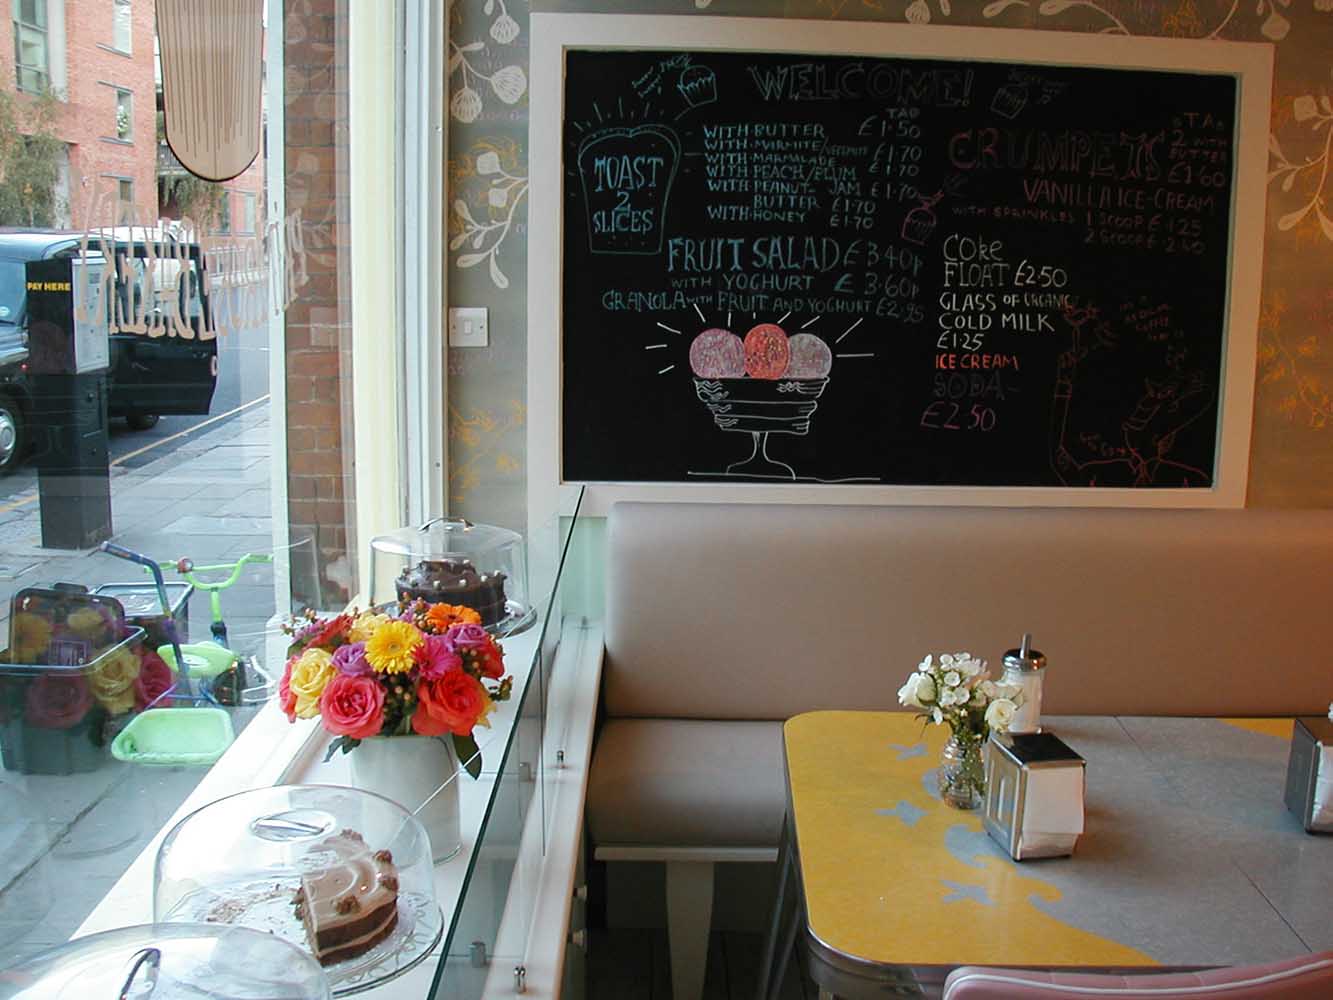 PAY HERE
WELCOME!
TOAST
2
SLICES
TAD
WITH·BUTTER £1·50
WITH·MARMITE/VEGEMITE £1·70
WITH·MARMALADE £1·70
WITH·PEACH/PLUM JAM £1·70
WITH·PEANUT BUTTER £1·70
WITH·HONEY £1·70
FRUIT SALAD £3.40p
WITH YOGHURT £3.60p
GRANOLA WITH FRUIT AND YOGHURT £2.95
CRUMPETS
2 WITH
BUTTER
£1·60
VANILLA ICE-CREAM
WITH SPRINKLES 1 SCOOP £1.25
2 SCOOP £2.40
COKE
FLOAT £2.50
GLASS OF ORGANIC
COLD MILK
£1·25
ICE CREAM
SODA-
£2.50